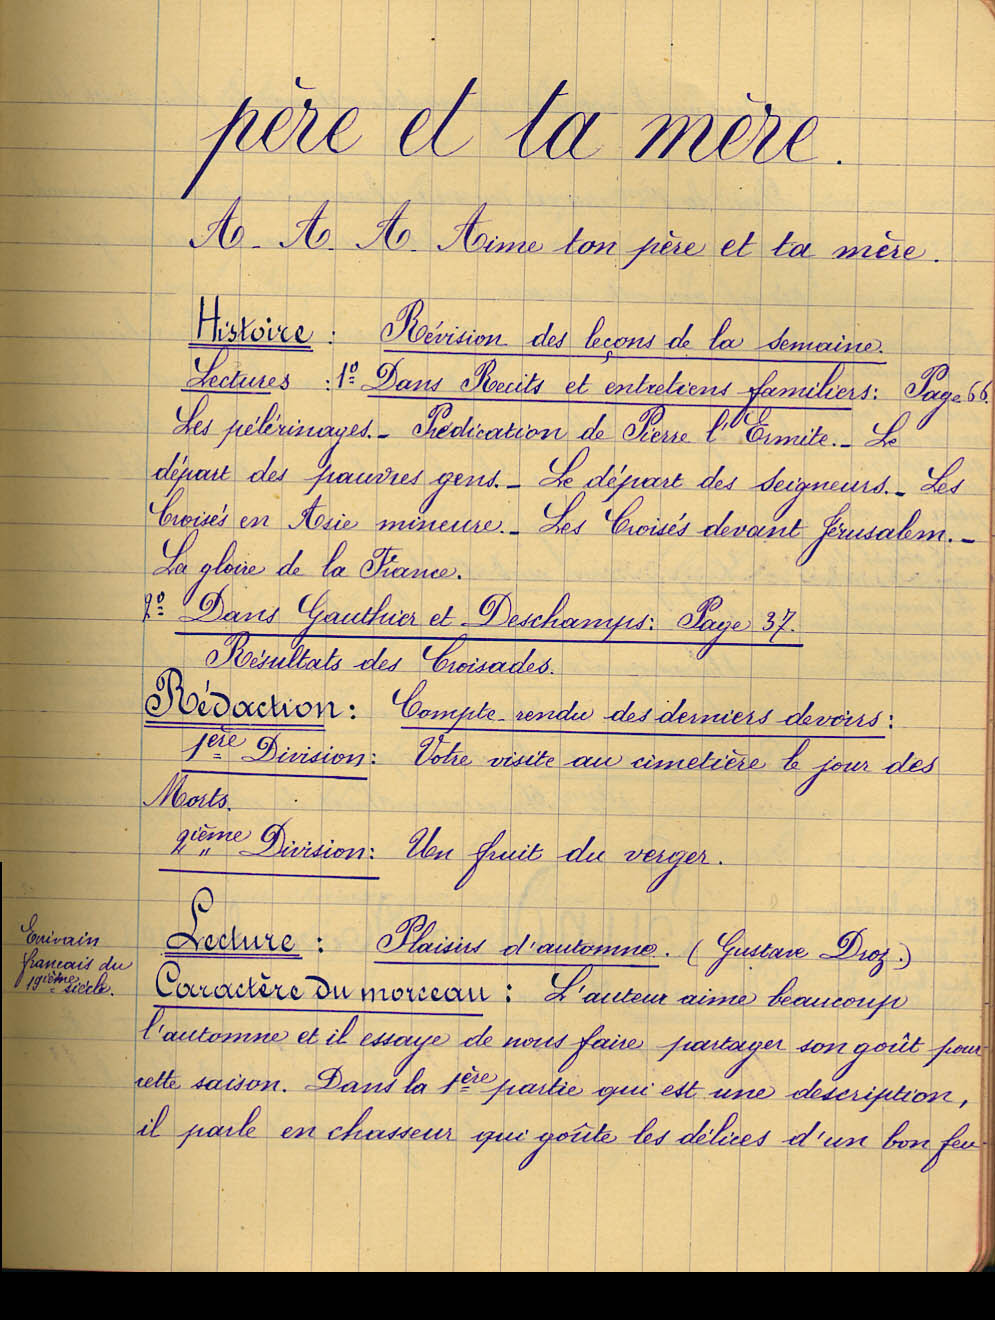 père et ta mère.
A - A. A. Aime ton père et ta mère.
Histoire : Révision des leçons de la semaine.
Lectures : 1º Dans Récits et entretiens familiers : Page 66.
Les pélérinages. - Prédication de Pierre l'Ermite. - Le
départ des pauvres gens. - Le départ des Seigneurs. - Les
Croisés en Asie mineure. - Les Croisés devant Jérusalem. -
La gloire de la France.
2º Dans Gauthier et Deschamps : Page 37.
Résultats des Croisades.
Rédaction : Compte-rendu des derniers devoirs :
1ère Division : Votre visite au cimetière le jour des
Morts.
2ième Division : Un fruit du verger.
Lecture : Plaisirs d'automne. (Gustave Droz.)
Ecrivain
français du
19ième siècle.
Caractère du morceau : L'auteur aime beaucoup
l'automne et il essaye de nous faire partager son goût pour
cette saison. Dans la 1ère partie qui est une description,
il parle en chasseur qui goûte les délices d'un bon feu